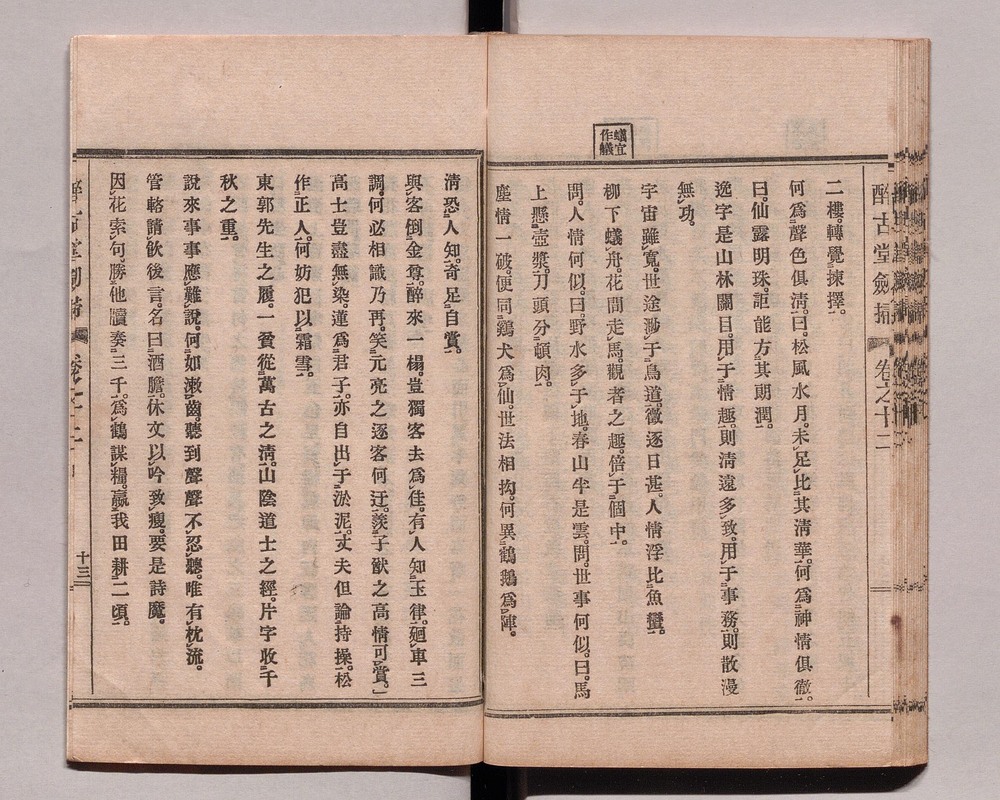 蟻宜作艤
醉古堂劍掃 卷之十二
二樓。轉覺揀擇。
何爲聲色俱淸。曰。松風水月。未足比其淸華。何爲神情俱徹。
曰。仙露明珠。詎能方其朗潤。
逸字是山林關目。用于情趣。則淸遠多致。用于事務。則散漫
無功。
宇宙雖寬。世途渺于鳥道。徵逐日甚。人情浮比魚蠻。
柳下蟻舟。花間走馬。觀者之趣。倍于個中。
問。人情何似。曰。野水多于地。春山半是雲。問。世事何似。曰。馬
上懸壺漿。刀頭分頓肉。
塵情一破。便同鷄犬爲仙。世法相拘。何異鶴鵝爲陣。
淸恐人知。奇足自賞。
與客倒金尊。醉來一榻。豈獨客去爲佳。有人知玉律。廻車三
調。何必相識乃再。笑元亮之逐客何迂。羨子猷之高情可賞。」
高士豈盡無染。蓮爲君子。亦自出于淤泥。丈夫但論持操。松
作正人。何妨犯以霜雪。
東郭先生之履。一貧從萬古之淸。山陰道士之經。片字收千
秋之重。
說來事事應難說。何如漱齒。聽到聲聲不忍聽。唯有枕流。
管輅請飮後言。名曰酒膽。休文以吟致瘦。要是詩魔。
因花索句。勝他牘奏三千。爲鶴謀糧。贏我田耕二頃。
十三